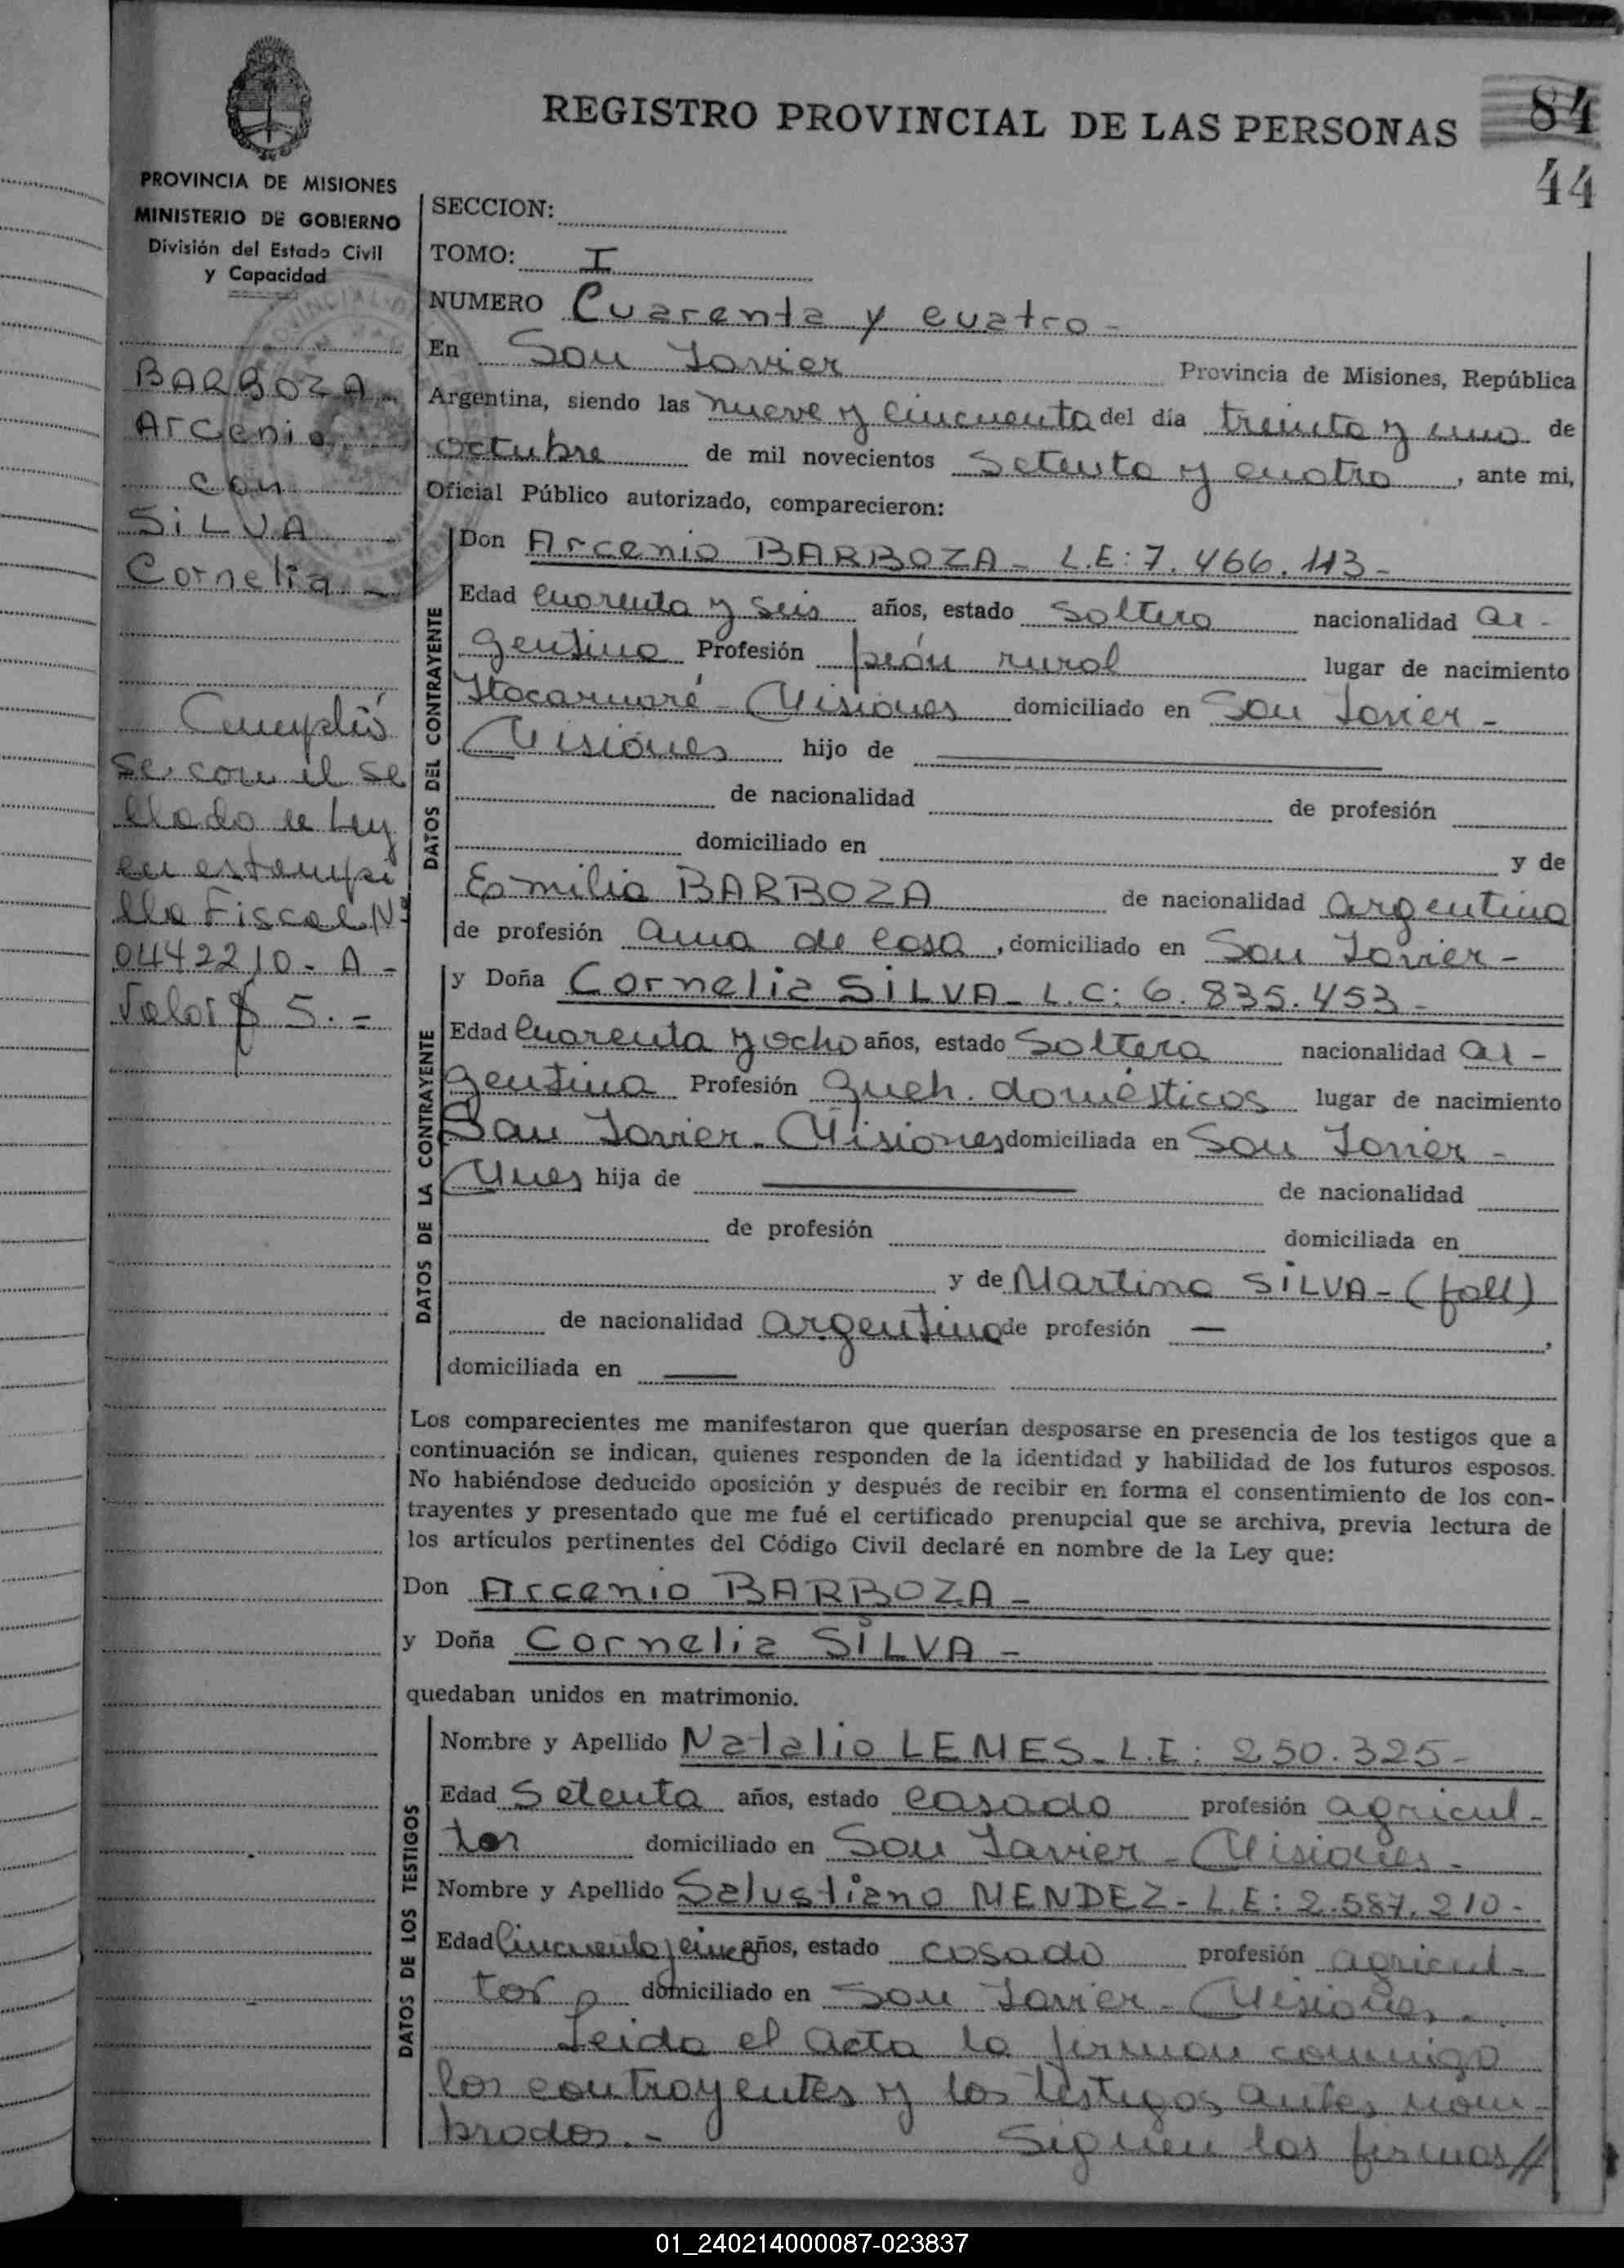 REGISTRO PROVINCIAL DE LAS PERSONAS
84
44
PROVINCIA DE MISIONES
MINISTERIO DE GOBIERNO
División del Estado Civil
y Capacidad
BARBOZA
Arcenio
con
SILVA
Cornelia -
Cumplió
se con el se
llado de Ley
en estampi
lla Fiscal Nº
0442210 - A -
Valor $ 5. -
SECCION:
TOMO: I
NUMERO Cuarenta y cuatro -
En San Javier Provincia de Misiones, República
Argentina, siendo las nueve y cincuenta del día treinta y uno de
octubre de mil novecientos setenta y cuatro, ante mi,
Oficial Público autorizado, comparecieron:
DATOS DEL CONTRAYENTE
Don Arcenio BARBOZA - L.E: 7.466.113 -
Edad cuarenta y seis años, estado soltero nacionalidad ar -
gentino Profesión peón rural lugar de nacimiento
Itacaruaré - Misiones domiciliado en San Javier -
Misiones hijo de
de nacionalidad de profesión
domiciliado en y de
Emilia BARBOZA de nacionalidad argentina
de profesión ama de casa, domiciliado en San Javier -
DATOS DE LA CONTRAYENTE
y Doña Cornelia SILVA - L.C: 6.835.453 -
Edad cuarenta y ocho años, estado soltera nacionalidad ar -
gentina Profesión queh. domésticos lugar de nacimiento
San Javier - Misiones domiciliada en San Javier -
Mnes hija de de nacionalidad
de profesión domiciliada en
y de Martina SILVA - (fall)
de nacionalidad argentina de profesión - ,
domiciliada en
Los comparecientes me manifestaron que querían desposarse en presencia de los testigos que a
continuación se indican, quienes responden de la identidad y habilidad de los futuros esposos.
No habiéndose deducido oposición y después de recibir en forma el consentimiento de los con-
trayentes y presentado que me fué el certificado prenupcial que se archiva, previa lectura de
los artículos pertinentes del Código Civil declaré en nombre de la Ley que:
Don Arcenio BARBOZA -
y Doña Cornelia SILVA -
quedaban unidos en matrimonio.
DATOS DE LOS TESTIGOS
Nombre y Apellido Natalio LEMES - L.E: 250.325 -
Edad Setenta años, estado casado profesión agricul -
tor domiciliado en San Javier - Misiones -
Nombre y Apellido Salustiano MENDEZ - L.E: 2.587.210 -
Edad Cincuenta y cinco años, estado casado profesión agricul -
tor domiciliado en San Javier - Misiones -
Leida el acta la firman conmigo
los contrayentes y los testigos antes nom -
brados. - Siguen las firmas//
01_240214000087-023837